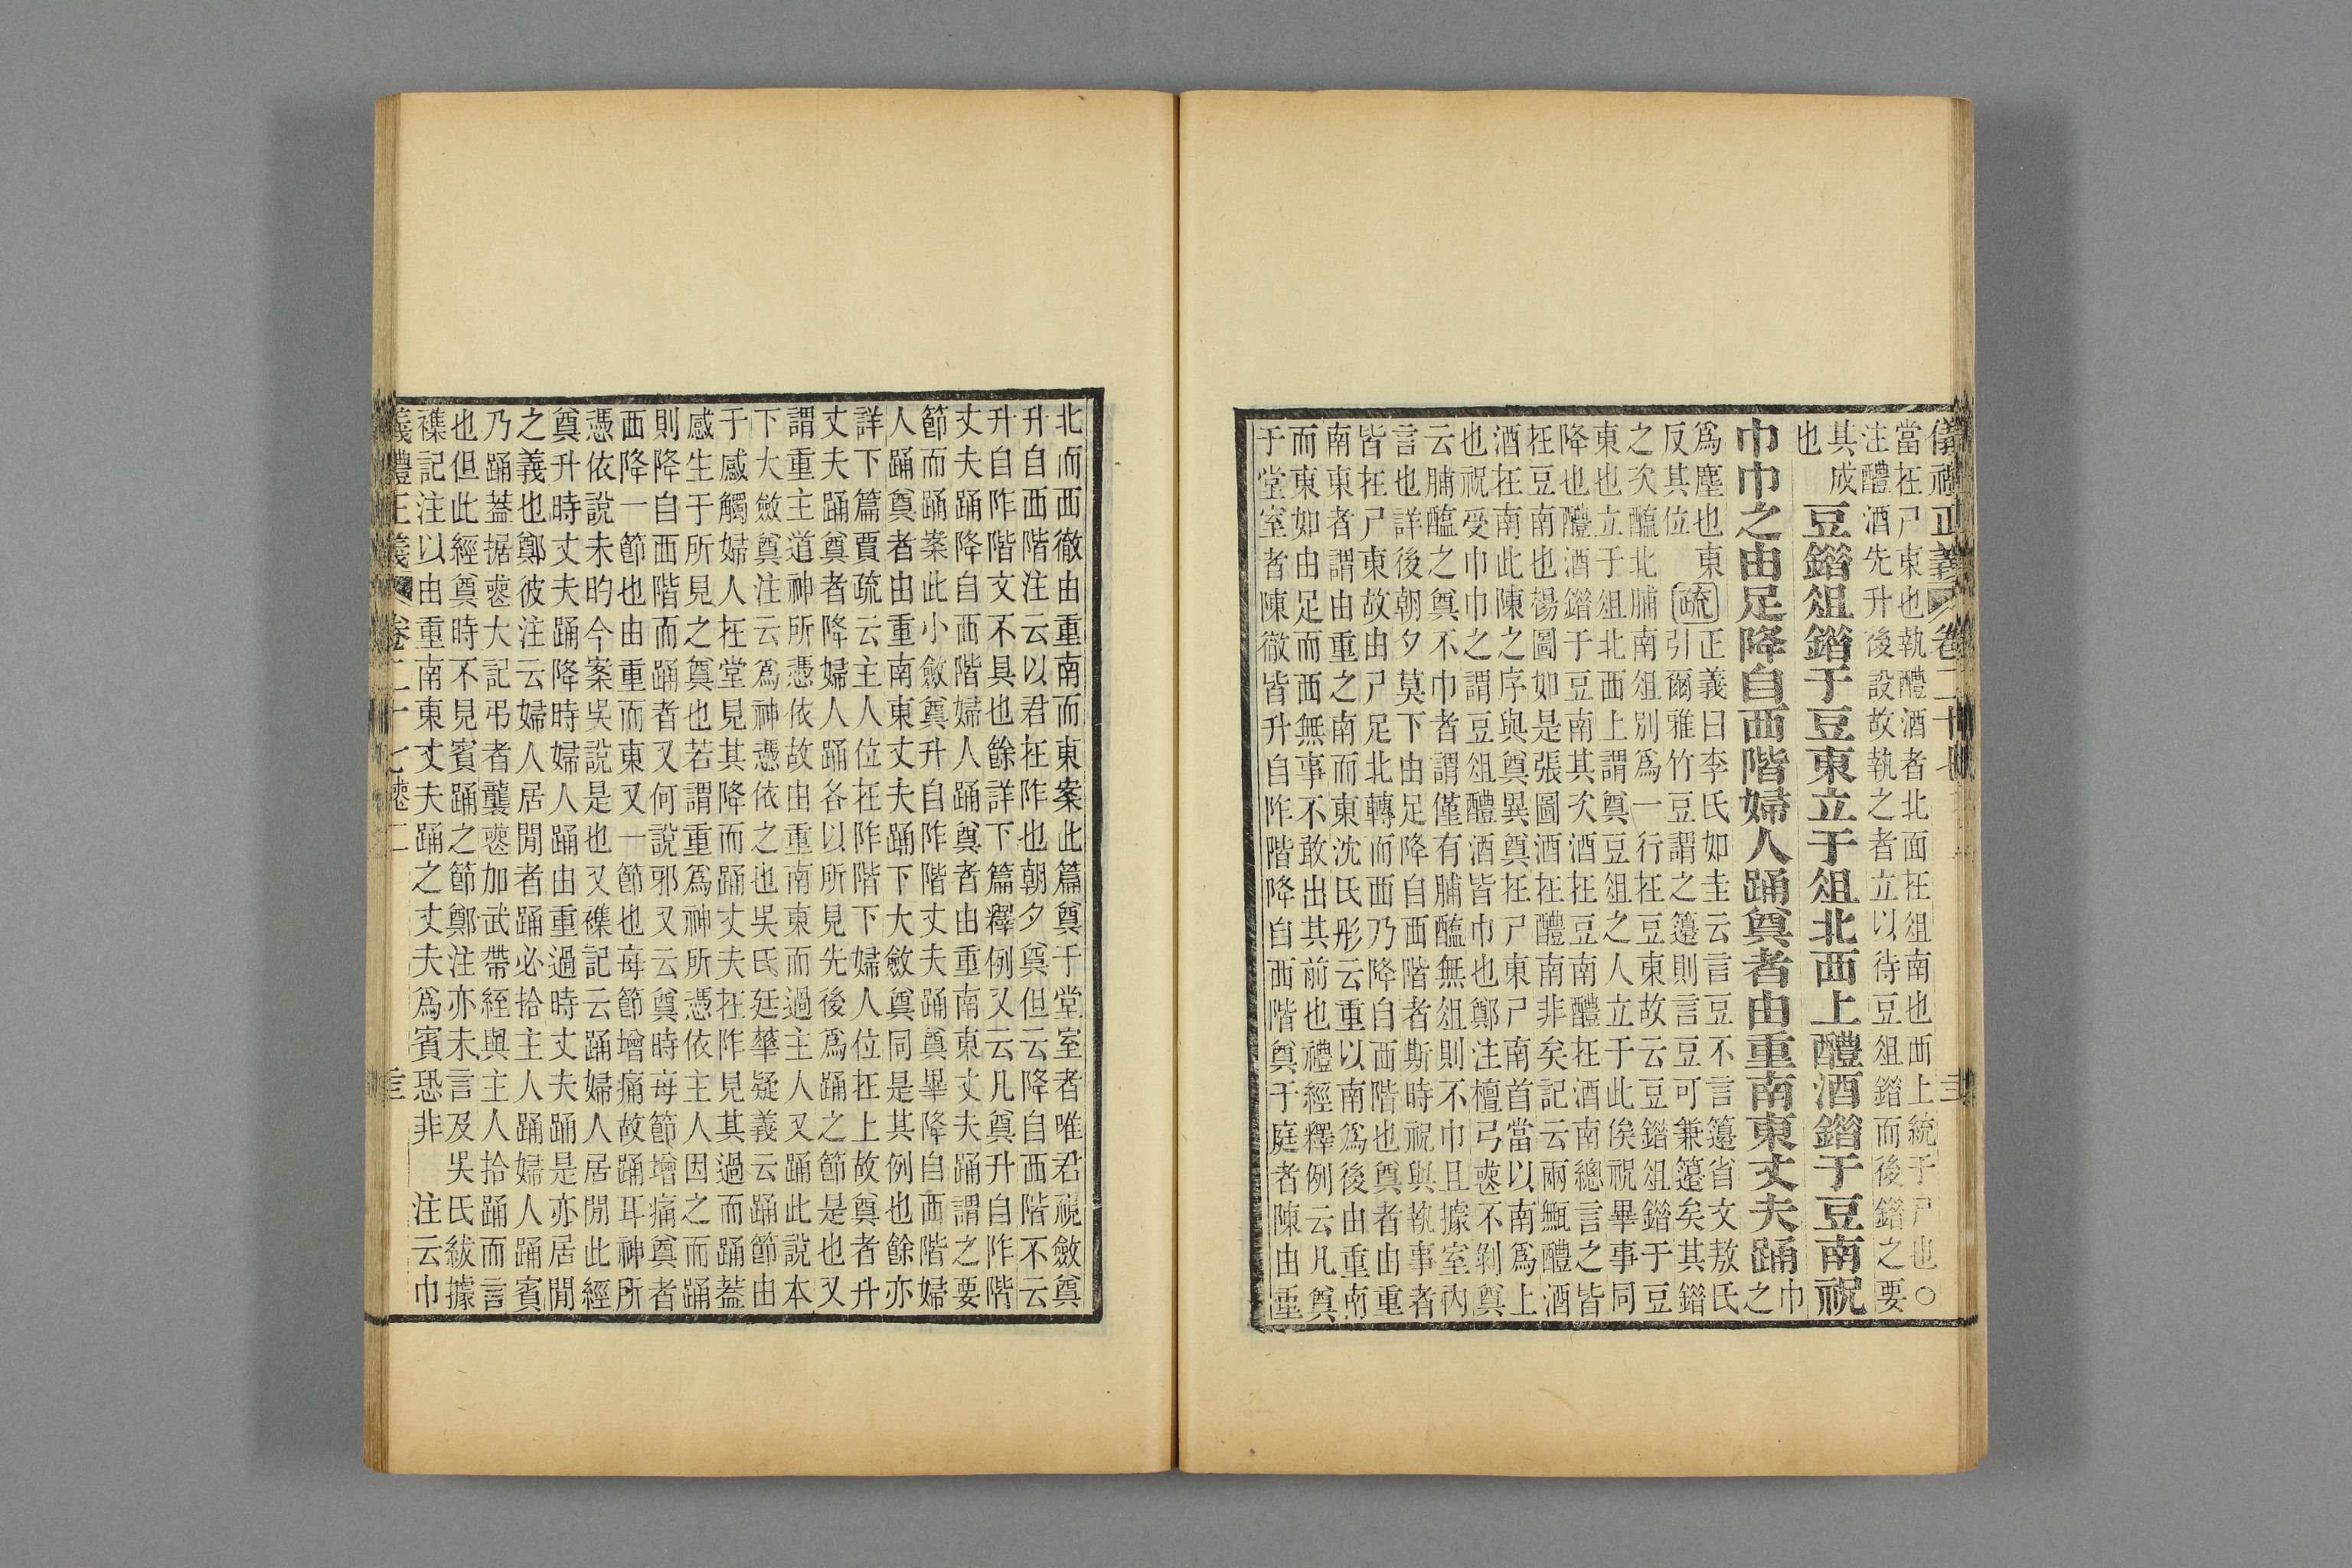 儀禮正義 卷二十七
當在尸東也執醴酒者北面在俎南也西上統于尸也○
注醴酒先升後設故執之者立以待豆俎錯而後錯之要
其成
也
豆錯俎錯于豆東立于俎北西上醴酒錯于豆南祝
巾巾之由足降自西階婦人踊奠者由重南東丈夫踊 巾之
爲塵也東
反其位
疏
正義曰李氏如圭云言豆不言籩省文敖氏
引爾雅竹豆謂之籩則言豆可兼籩矣其錯
之次醢北脯南俎別爲一行在豆東故云豆錯俎錯于豆
東也立于俎北西上謂奠豆俎之人立于此俟祝畢事同
降也醴酒錯于豆南其次酒在豆南醴在酒南總言之皆
在豆南也楊圖如是張圖酒在醴南非矣記云兩甒醴酒
酒在南此陳之序與奠異奠在尸東尸南首當以南爲上
也祝受巾巾之謂豆俎醴酒皆巾也鄭注檀弓喪不剝奠
云脯醢之奠不巾者謂僅有脯醢無俎則不巾且據室內
言也詳後朝夕莫下由足降自西階者斯時祝與執事者
皆在尸東故由尸足北轉而西乃降自西階也奠者由重
南東者謂由重之南而東沈氏彤云重以南爲後由重南
而東如由足而西無事不敢出其前也禮經釋例云凡奠
于堂室者陳徹皆升自阼階降自西階奠于庭者陳由重
北而西徹由重南而東案此篇奠于堂室者唯君視斂奠
升自西階注云以君在阼也朝夕奠但云降自西階不云
升自阼階文不具也餘詳下篇釋例又云凡奠升自阼階
丈夫踊降自西階婦人踊奠者由重南東丈夫踊謂之要
節而踊案此小斂奠升自阼階丈夫踊奠畢降自西階婦
人踊奠者由重南東丈夫踊下大斂奠同是其例也餘亦
詳下篇賈疏云主人位在阼階下婦人位在上故奠者升
丈夫踊奠者降婦人踊各以所見先後爲踊之節是也又
謂重主道神所憑依故由重南東而過主人又踊此說本
下大斂奠注云爲神憑依之也吳氏廷華疑義云踊節由
于感觸婦人在堂見其降而踊丈夫在阼見其過而踊蓋
感生于所見之奠也若謂重爲神所憑依主人因之而踊
則降自西階而踊者又何說邪又云奠時每節增痛奠者
西降一節也由重而東又一節也每節增痛故踊耳神所
憑依說未昀今案吳說是也又襍記云踊婦人居閒此經
奠升時丈夫踊降時婦人踊由重過時丈夫踊是亦居閒
之義也鄭彼注云婦人居閒者踊必拾主人踊婦人踊賓
乃踊蓋据喪大記弔者襲裘加武帶絰與主人拾踊而言
也但此經奠時不見賓踊之節鄭注亦未言及吳氏紱據
襍記注以由重南東丈夫踊之丈夫爲賓恐非 注云巾
義禮正義 卷二十七 喪二